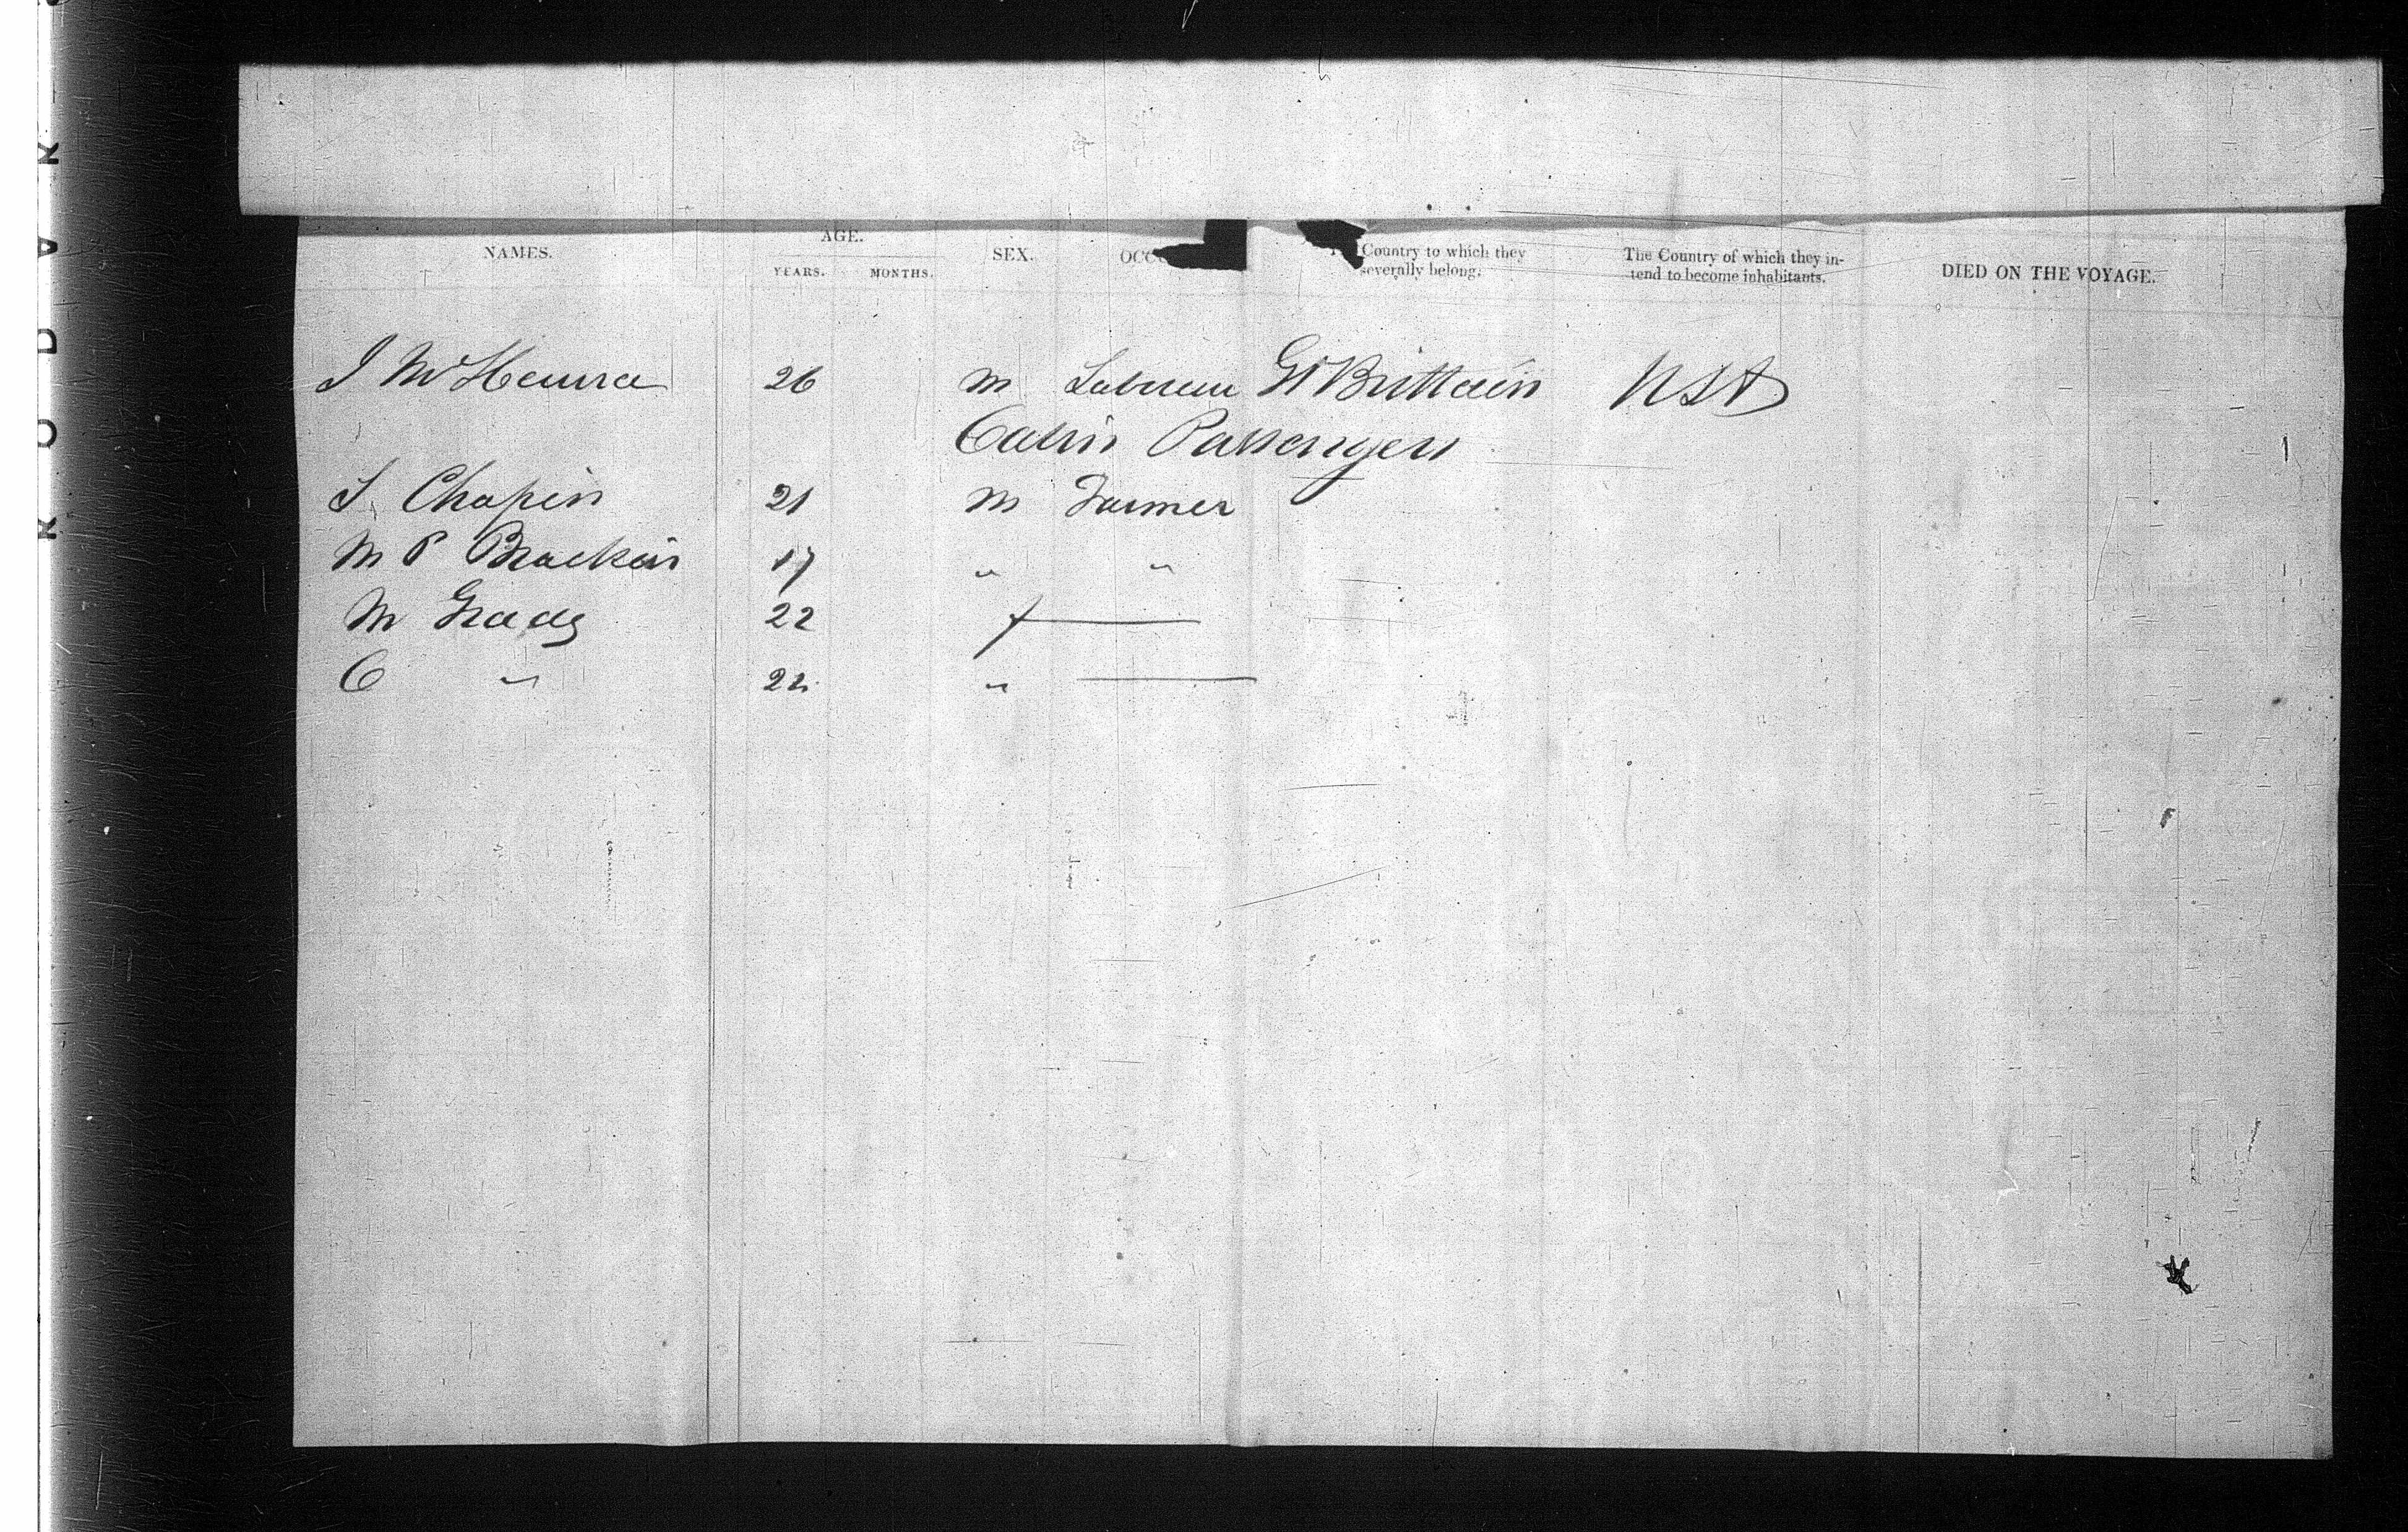 AGE.
NAMES. SEX. Country to which they The Country of which they in-
YEARS. MONTHS. severally belong. tend to become inhabitants. DIED ON THE VOYAGE.
26 m Gt Brittain USA
Cabin Passengers
S. Chapin 21 m Farmer
M P Bracken 17 " "
M Grady 22 f —
C " 22 " —